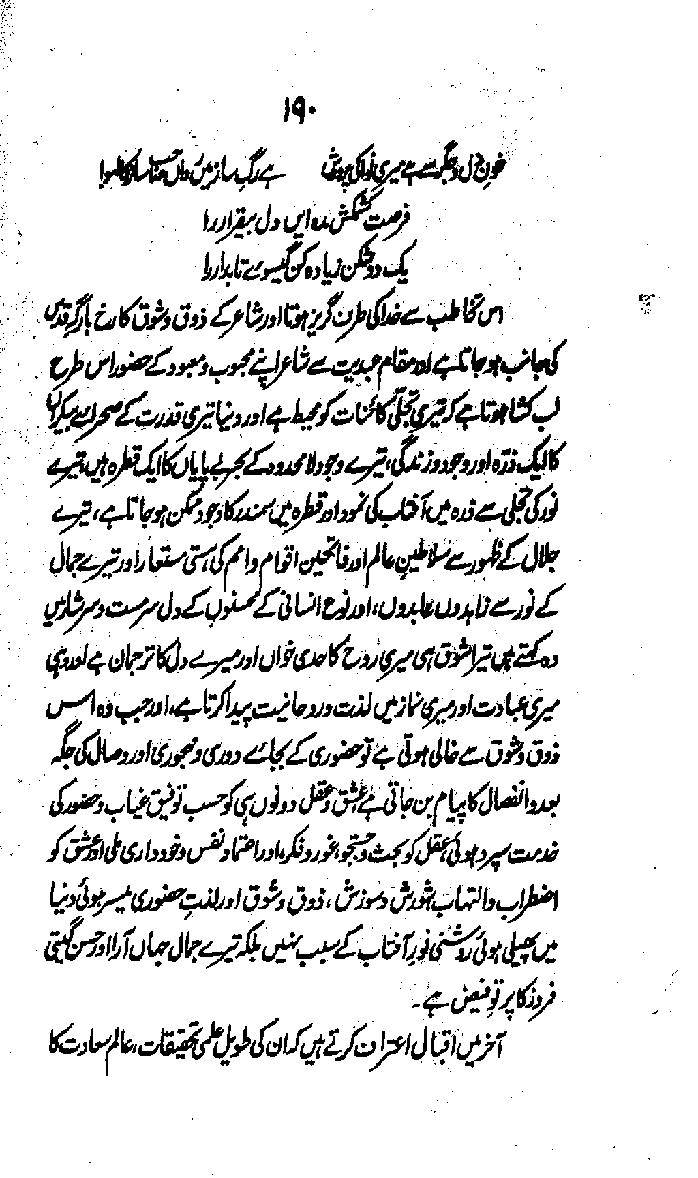 ۱۹۰
خونِ دل و جگر سے ہے میری نوا کی پرورش ہے رگِ ساز میں رواں صاحبِ ساز کا لہو
فرصت کشمکش مدہ ایں دل بیقرار را
یک دو شکن زیادہ کن گیسوئے تابدار را
اس تخاطب سے خدا کی طرف گریز ہوتا اور شاعر کے ذوق و شوق کا رخ بارگہِ قدس
کی جانب ہو جاتا ہے اور مقام عبدیت سے شاعر اپنے محبوب و معبود کے حضور اس طرح
لب کشا ہوتا ہے کہ تیری تجلّی کائنات کو محیط ہے اور دنیا تیری قدرت کے صحرائے بیکراں
کا ایک ذرّہ اور وجود و زندگی، تیرے وجود لا محدود کے بحرِ بے پایاں کا ایک قطرہ ہیں، تیرے
نور کی تجلی سے ذرہ میں آفتاب کی نمود اور قطرہ میں سمندر کا وجود ممکن ہو جاتا ہے، تیرے
جلال کے ظہور سے سلاطینِ عالم اور فاتحین اقوام و امم کی ہستی مستعار اور تیرے جمال
کے نور سے زاہدوں عابدوں، اور نوع انسانی کے محسنوں کے دل سرمست و سرشار ہیں
وہ کہتے ہیں تیرا شوق ہی میری روح کا حدی خواں اور میرے دل کا ترجمان ہے اور وہی
میری عبادت اور میری نماز میں لذت و روحانیت پیدا کرتا ہے، اور جب وہ اس
ذوق و شوق سے خالی ہوتی ہے تو حضوری کے بجائے دوری و مہجوری اور وصال کی جگہ
بعد و انفصال کا پیام بن جاتی ہے عشق و عقل دونوں ہی کو حسب توفیق غیاب و حضور کی
خدمت سپرد ہوئی عقل کو بحث و جستجو، غور و فکر، اور اعتماد نفس و خود داری ملی اور عشق کو
اضطراب و التہاب، شورش و سوزش، ذوق و شوق اور لذتِ حضوری میسر ہوئی دنیا
میں پھیلی ہوئی روشنی نورِ آفتاب کے سبب نہیں بلکہ تیرے جمال جہاں آرا اور حسن گیتی
فروز کا پر تو فیض ہے۔
آخر میں اقبال اعتراف کرتے ہیں کہ ان کی طویل علمی تحقیقات، عالم سعادت کا